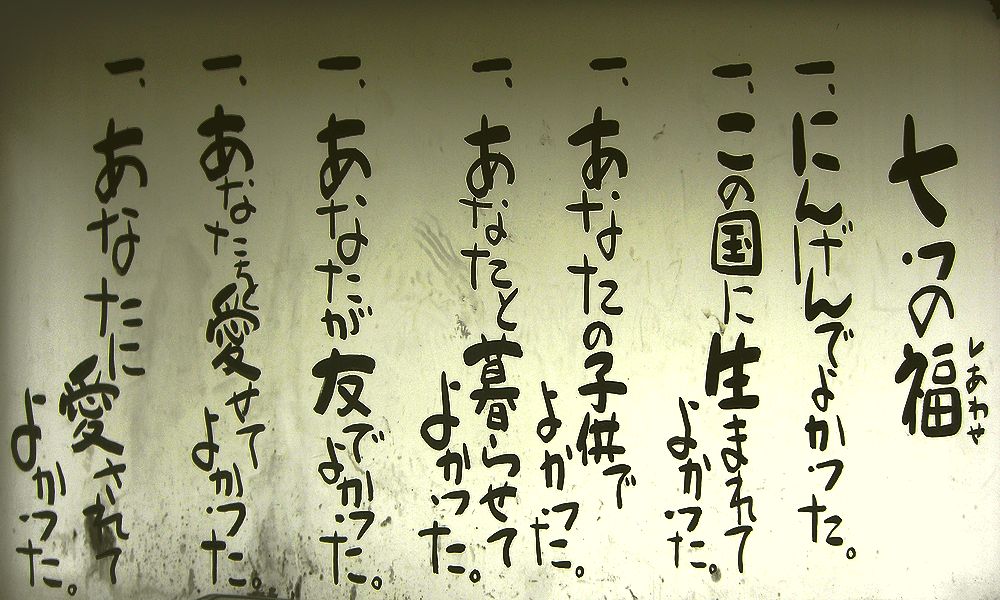 七つの福
しあわせ
一、にんげんでよかった。
一、この国に生まれて
よかった。
一、あなたの子供で
よかった。
一、あなたと暮らせて
よかった。
一、あなたが友でよかった。
一、あなたを愛せて
よかった。
一、あなたに愛されて
よかった。